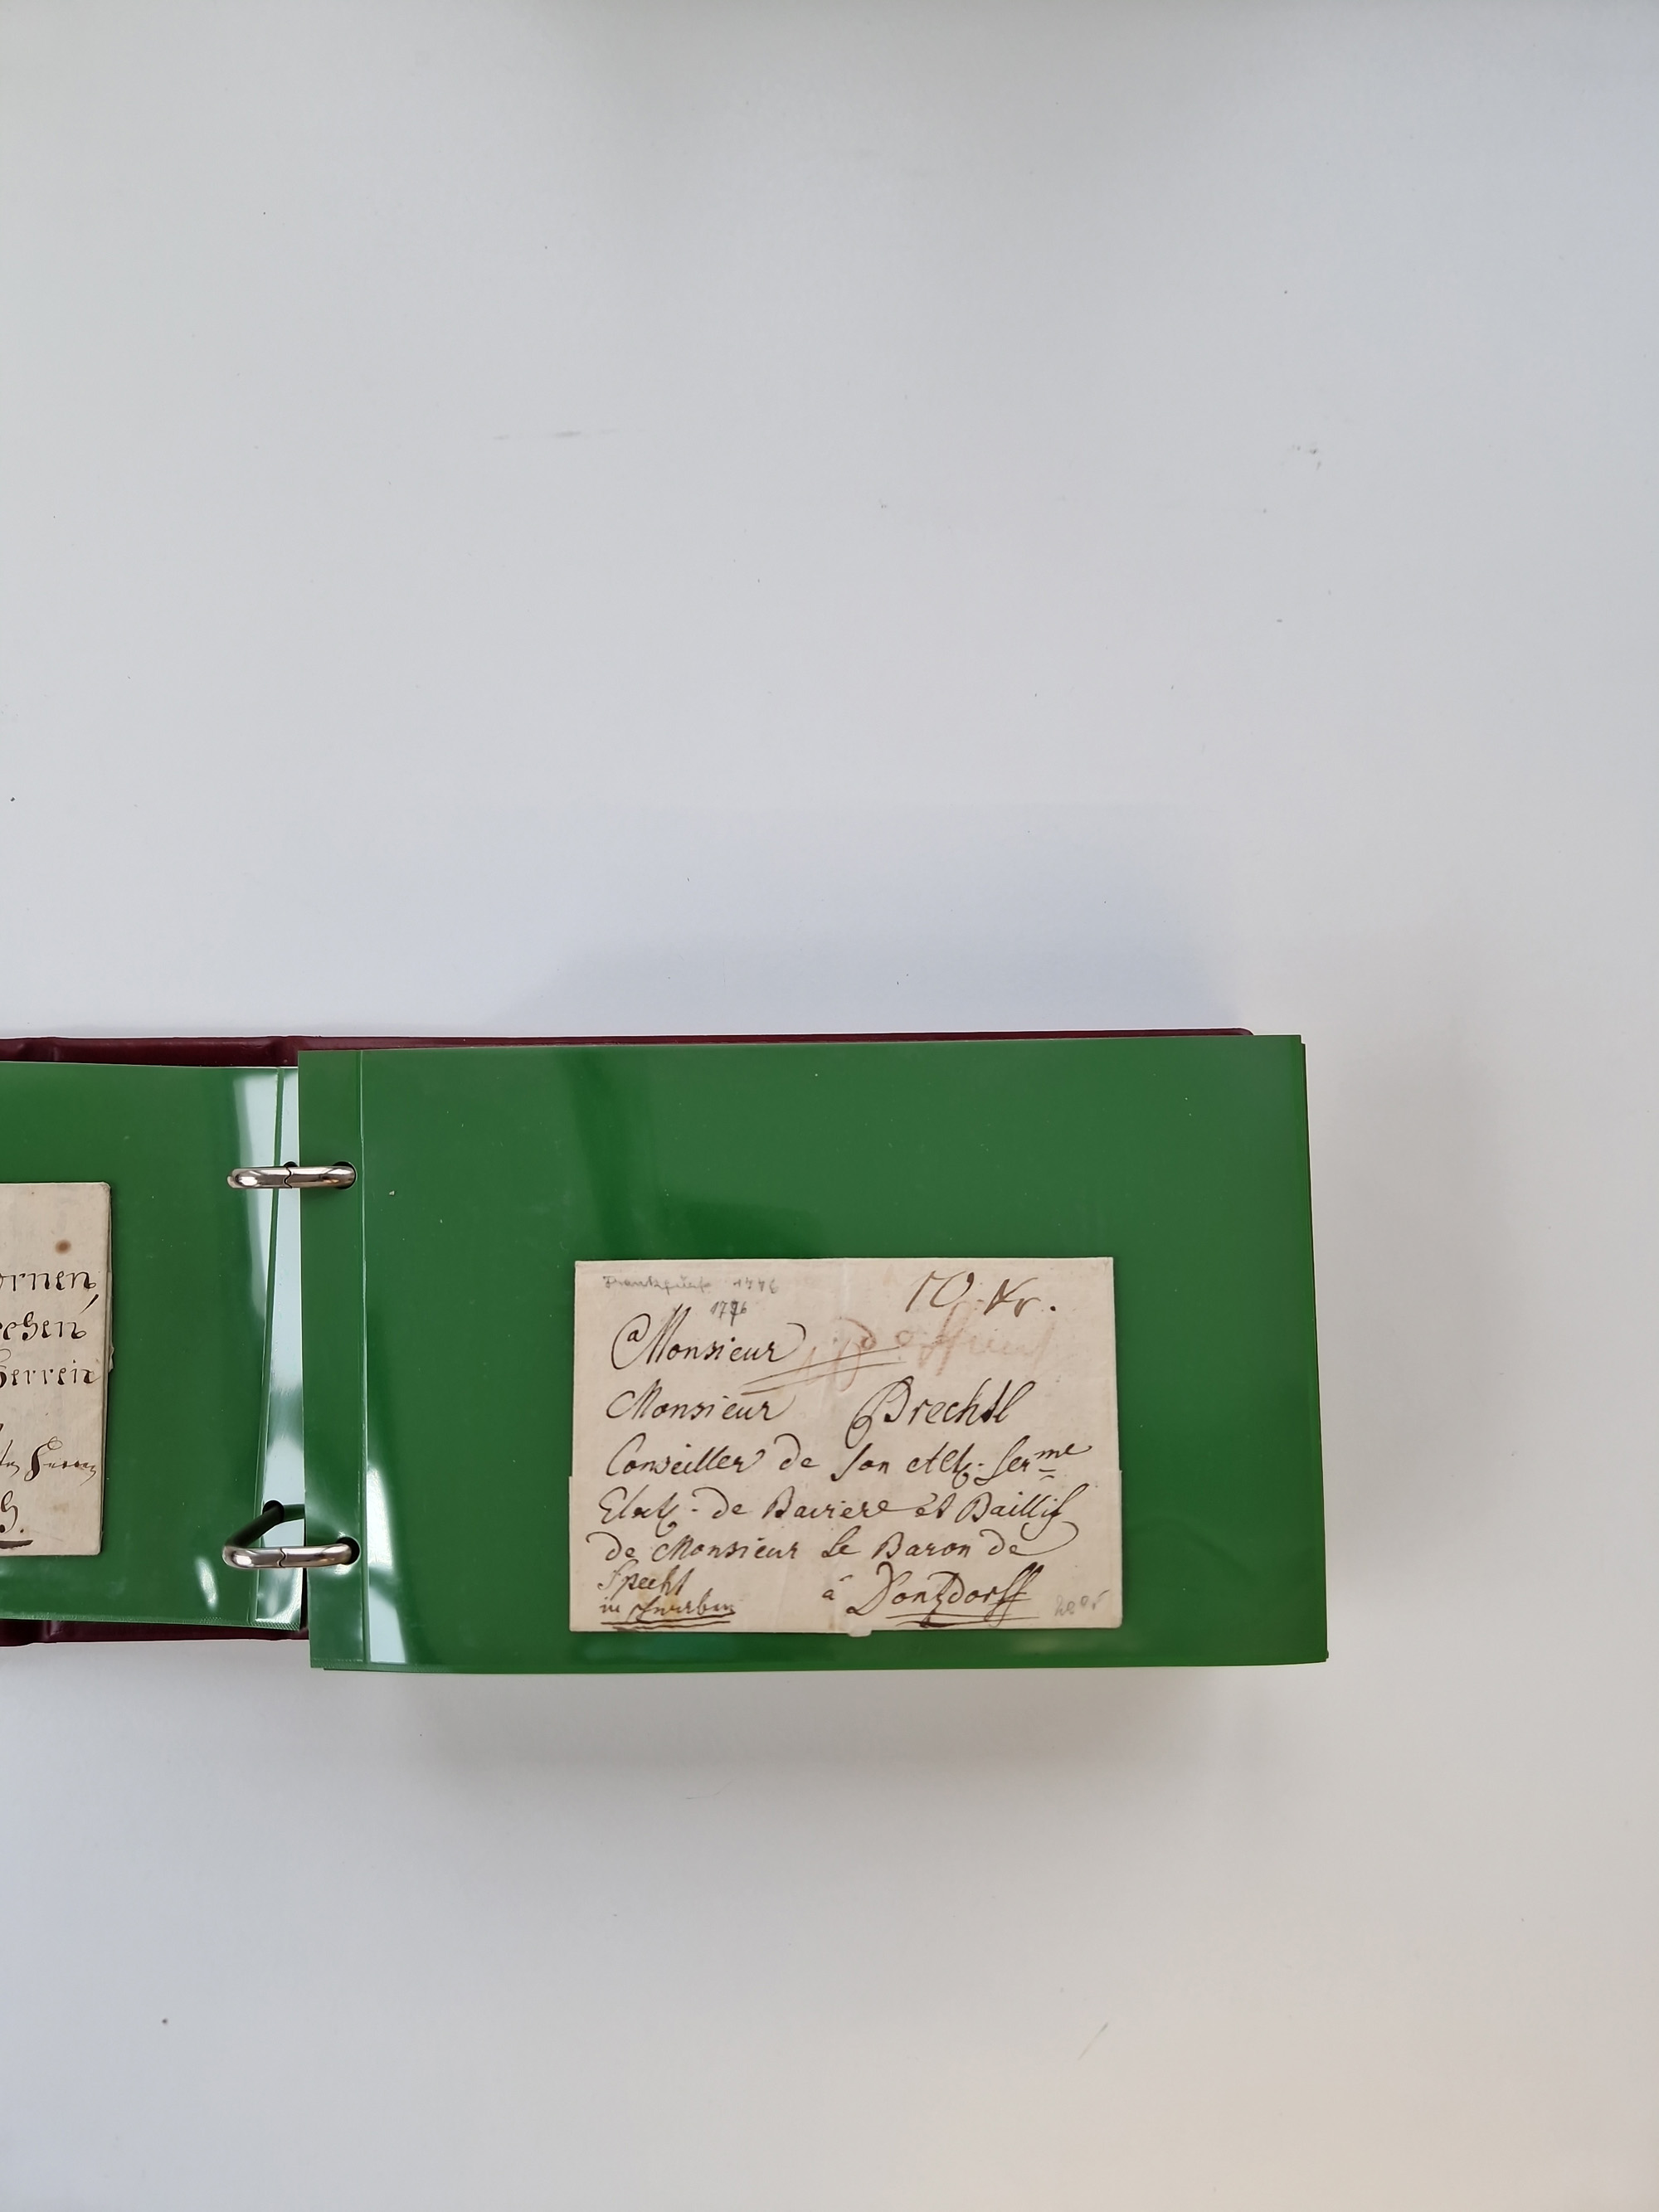 ornen,
Herren
G.
Frankfurt 1776
1776
10. Kr.
a Monsieur
Monsieur Brechtl
Conseiller de Son Alt: Serme
Elect: de Baviere et Baillif
de Monsieur le Baron de
Specht
in Schwaben
à Donzdorff